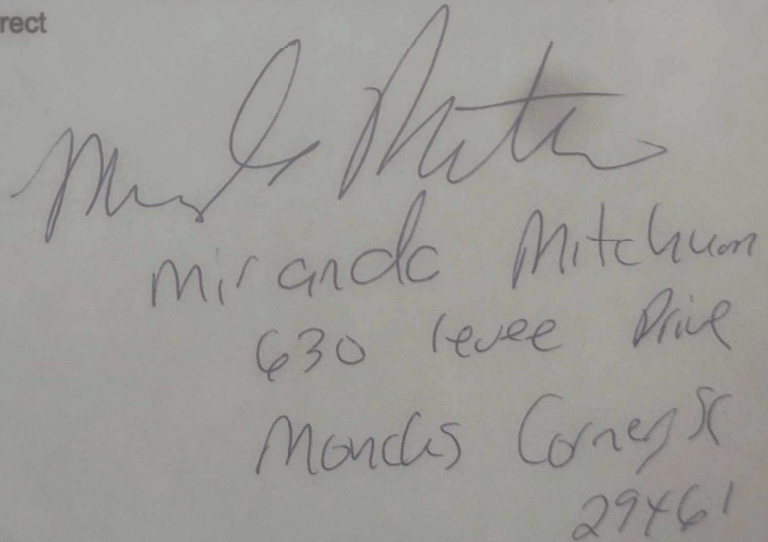 rect
Miranda Mitchum
630 levee Drive
Moncks Corner, SC
29461